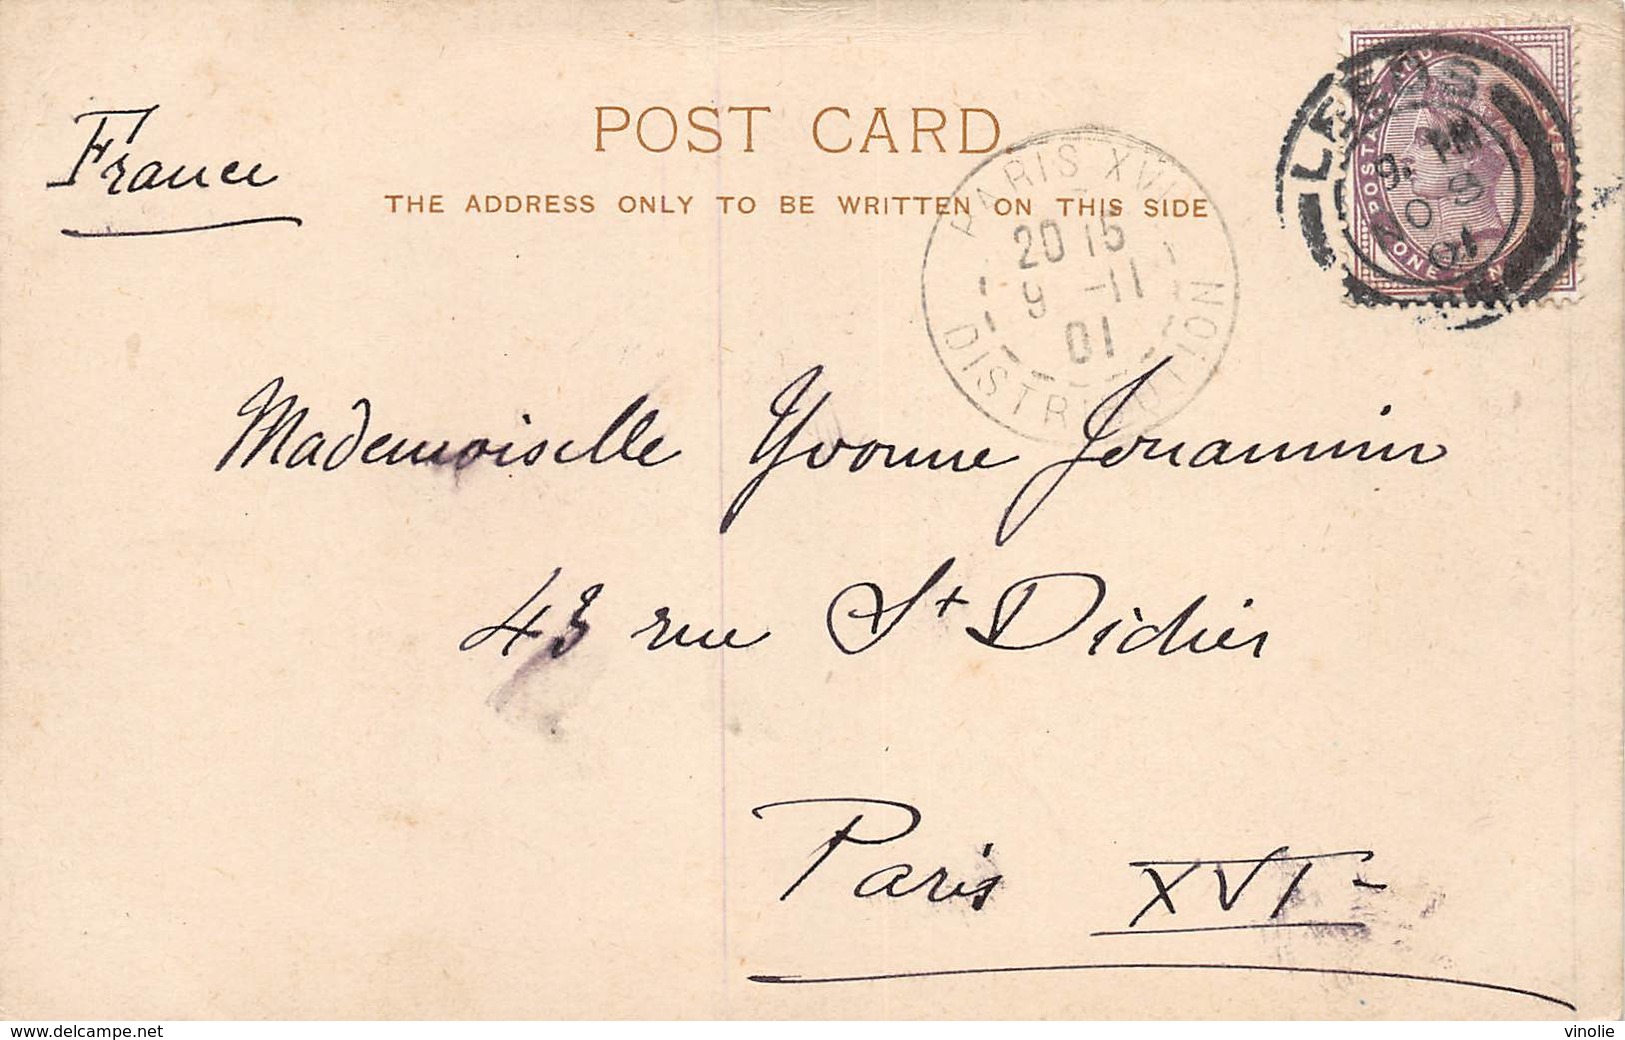 POST CARD
THE ADDRESS ONLY TO BE WRITTEN ON THIS SIDE
France
LEEDS
9. PM
NO 8
01
POSTAGE AND
ONE PENNY
PARIS XVI
20 15
9 -11
01
DISTRIBUTION
Mademoiselle Yvonne Jouannin
43 rue St Didier
Paris XVI-
www.delcampe.net
vinolie